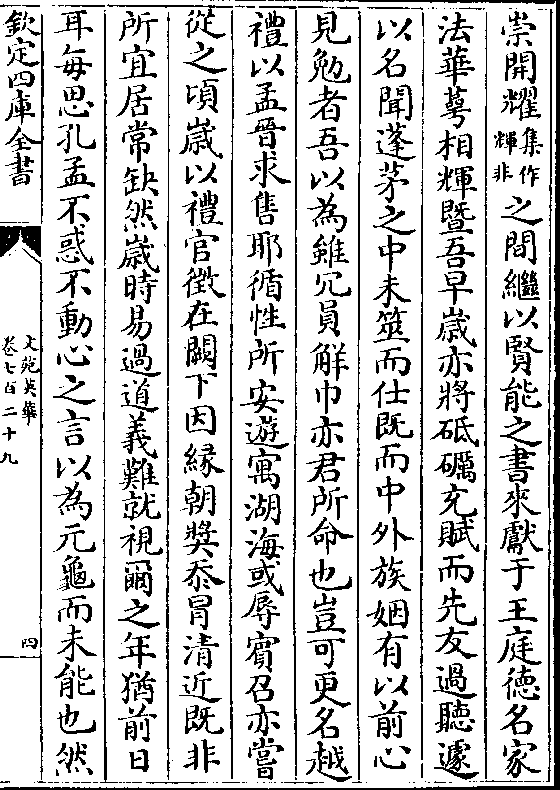 崇開耀集作輝非之間繼以賢能之書來獻于王庭徳名家
法華萼相輝暨吾早歳亦將砥礪充賦而先友過聽遽
以名聞蓬茅之中未筮而仕既而中外族姻有以前心
見勉者吾以為雖冗員解巾亦君所命也豈可更名越
禮以孟晉求售耶循性所安遊寓湖海或辱賓召亦嘗
從之頃歳以禮官徴在闕下因縁朝奬忝冒清近既非
所宜居常缺然歳時易過道義難就視爾之年猶前日
耳毎思孔孟不惑不動心之言以為元龜而未能也然
欽定四庫全書
文苑英華
卷七百二十九
四